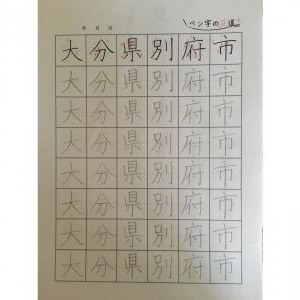 年 月 日
ペン字の三道
大分県別府市
大分県別府市
大分県別府市
大分県別府市
大分県別府市
大分県別府市
大分県別府市
大分県別府市